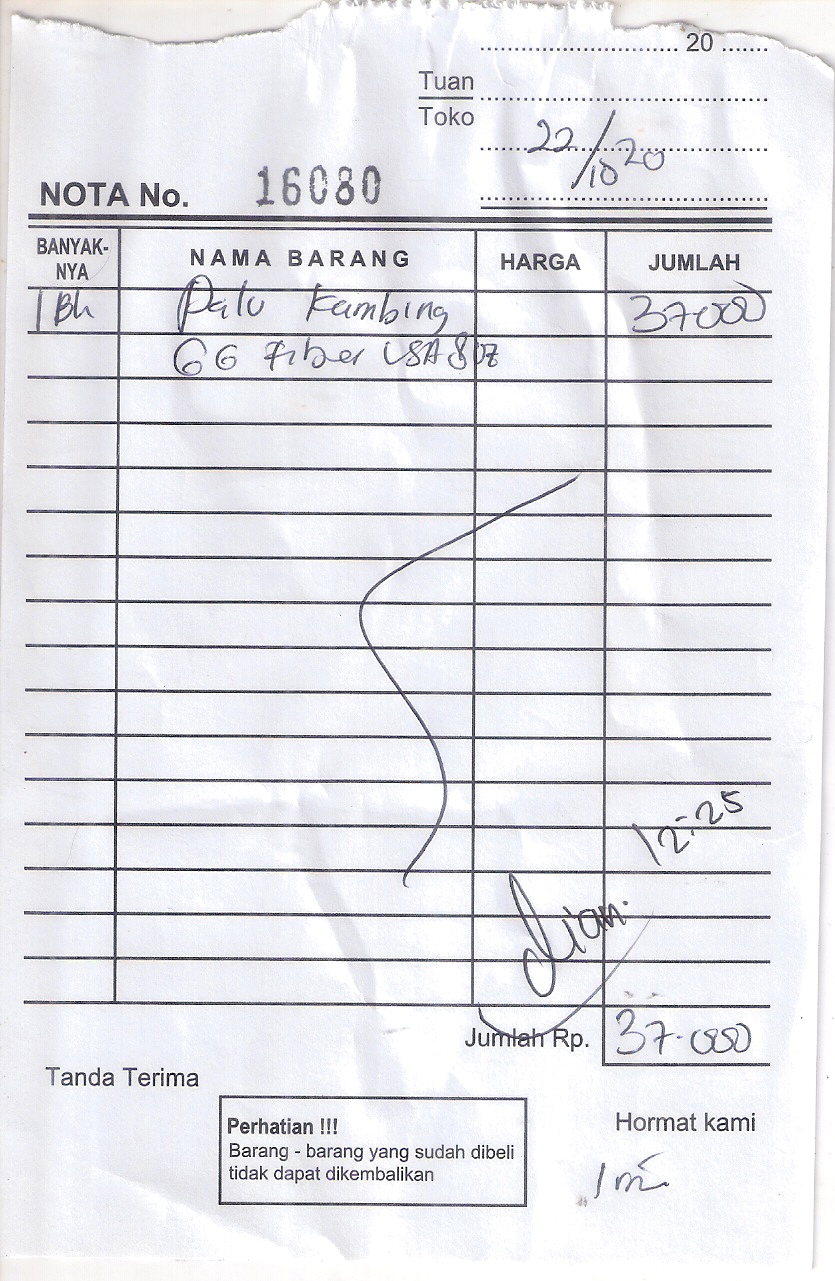 20
Tuan
Toko
22/10 20
NOTA No. 16080
BANYAK-NYA NAMA BARANG HARGA JUMLAH
1 Bh Palu Kambing 37000
GG Fiber USA 8 oz
12:25
dian.
Jumlah Rp. 37.000
Tanda Terima
Perhatian !!!
Hormat kami
Barang - barang yang sudah dibeli
tidak dapat dikembalikan